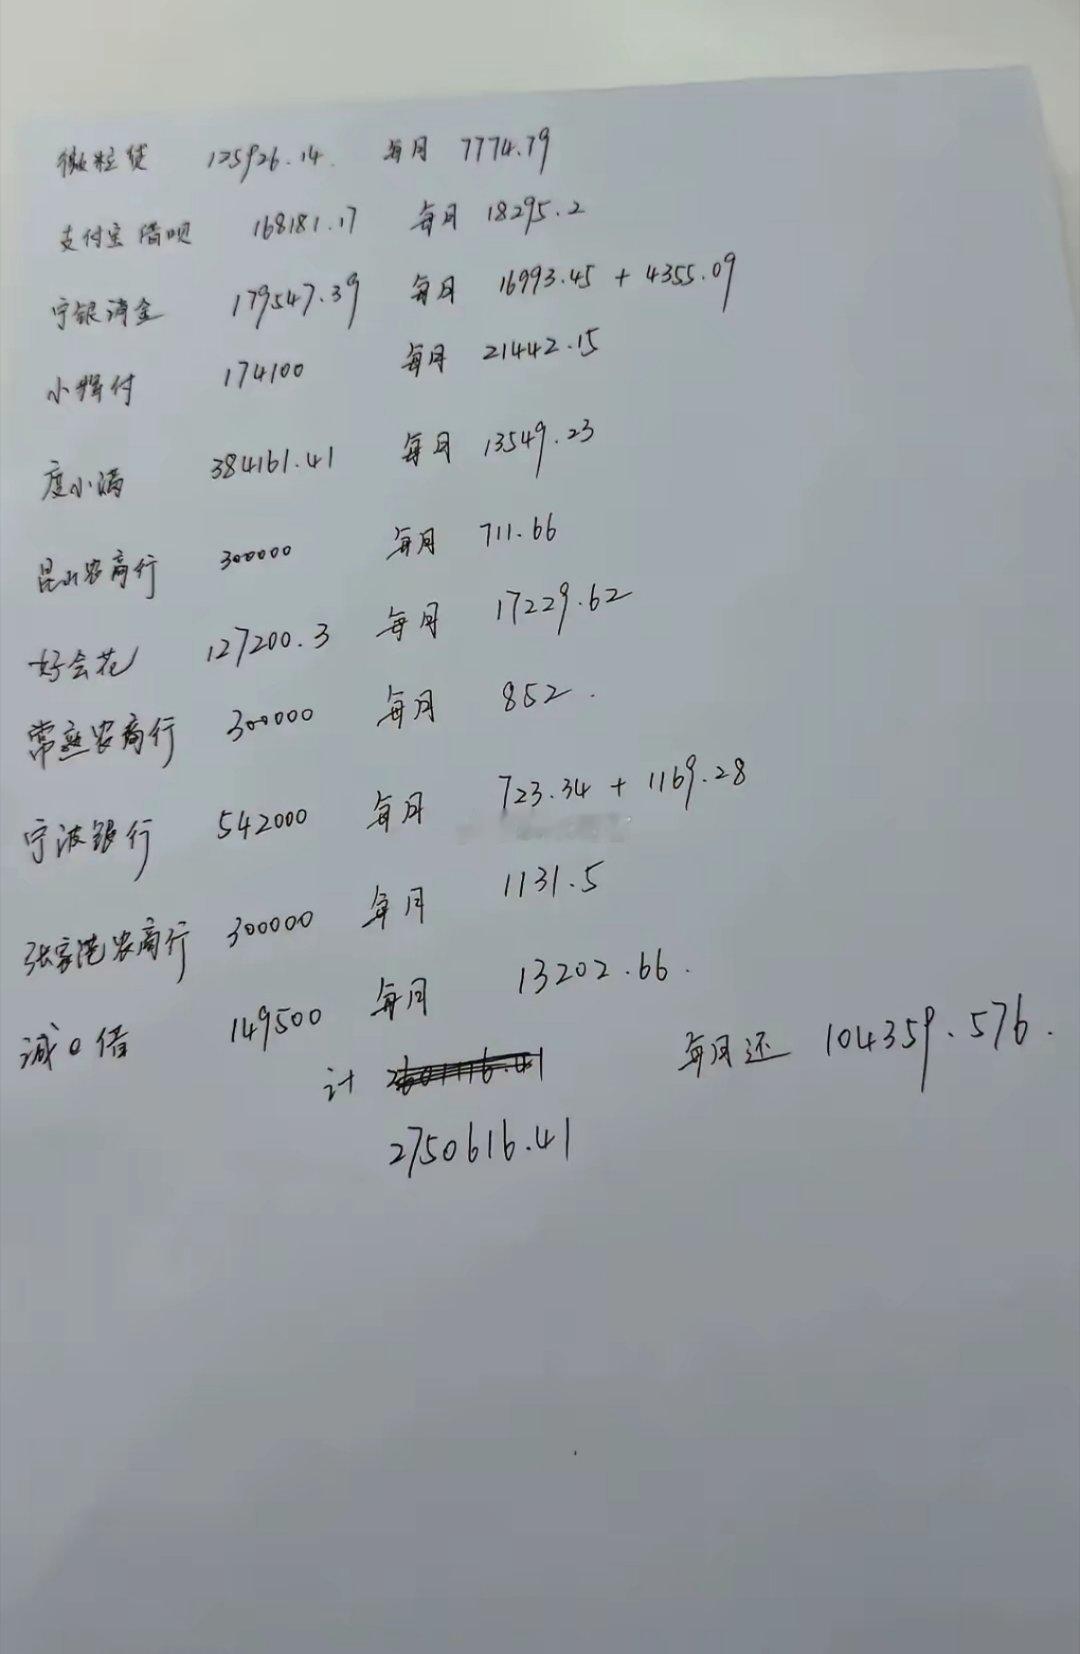 微粒贷 125926.14. 每月 7774.79
支付宝借呗 168181.17 每月 18295.2
宁银消金 179547.39 每月 16993.45 + 4355.09
小辉付 174100 每月 21442.15
度小满 384161.41 每月 13549.23
昆山农商行 300000 每月 711.66
好会花 127200.3 每月 17229.62
常熟农商行 300000 每月 852.
宁波银行 542000 每月 723.34 + 1169.28
张家港农商行 300000 每月 1131.5
诚0借 149500 每月 13202.66.
计 每月还 104359.576.
2750616.41